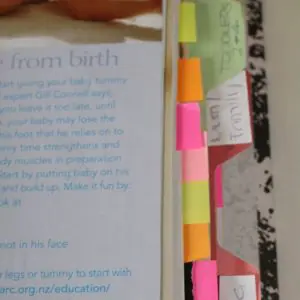 e from birth
tart giving your baby tummy
expert Gill Connell says,
you leave it too late, until
, your baby may lose the
his foot that he relies on to
my time strengthens and
dy muscles in preparation
Start by putting baby on his
and build up. Make it fun by:
ok at
not in his face
r legs or tummy to start with
arc.org.nz/education/